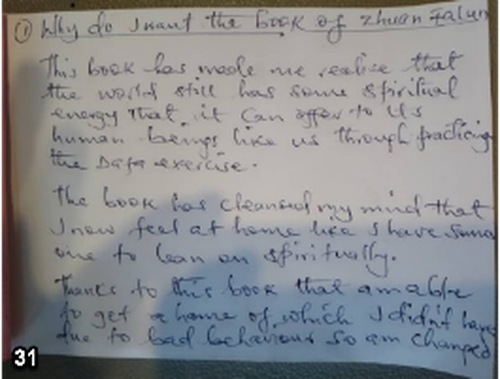 ① Why do I want the book of Zhuan Falun
This book has made me realise that
the world still has some spiritual
energy that it can offer to us
human beings like us through practicing
the Dafa exercise.
The book has cleansed my mind that
I now feel at home like I have some
one to lean on spiritually.
Thanks to this book that am able
to get a home of which I didn't have
due to bad behaviour so am changed
31